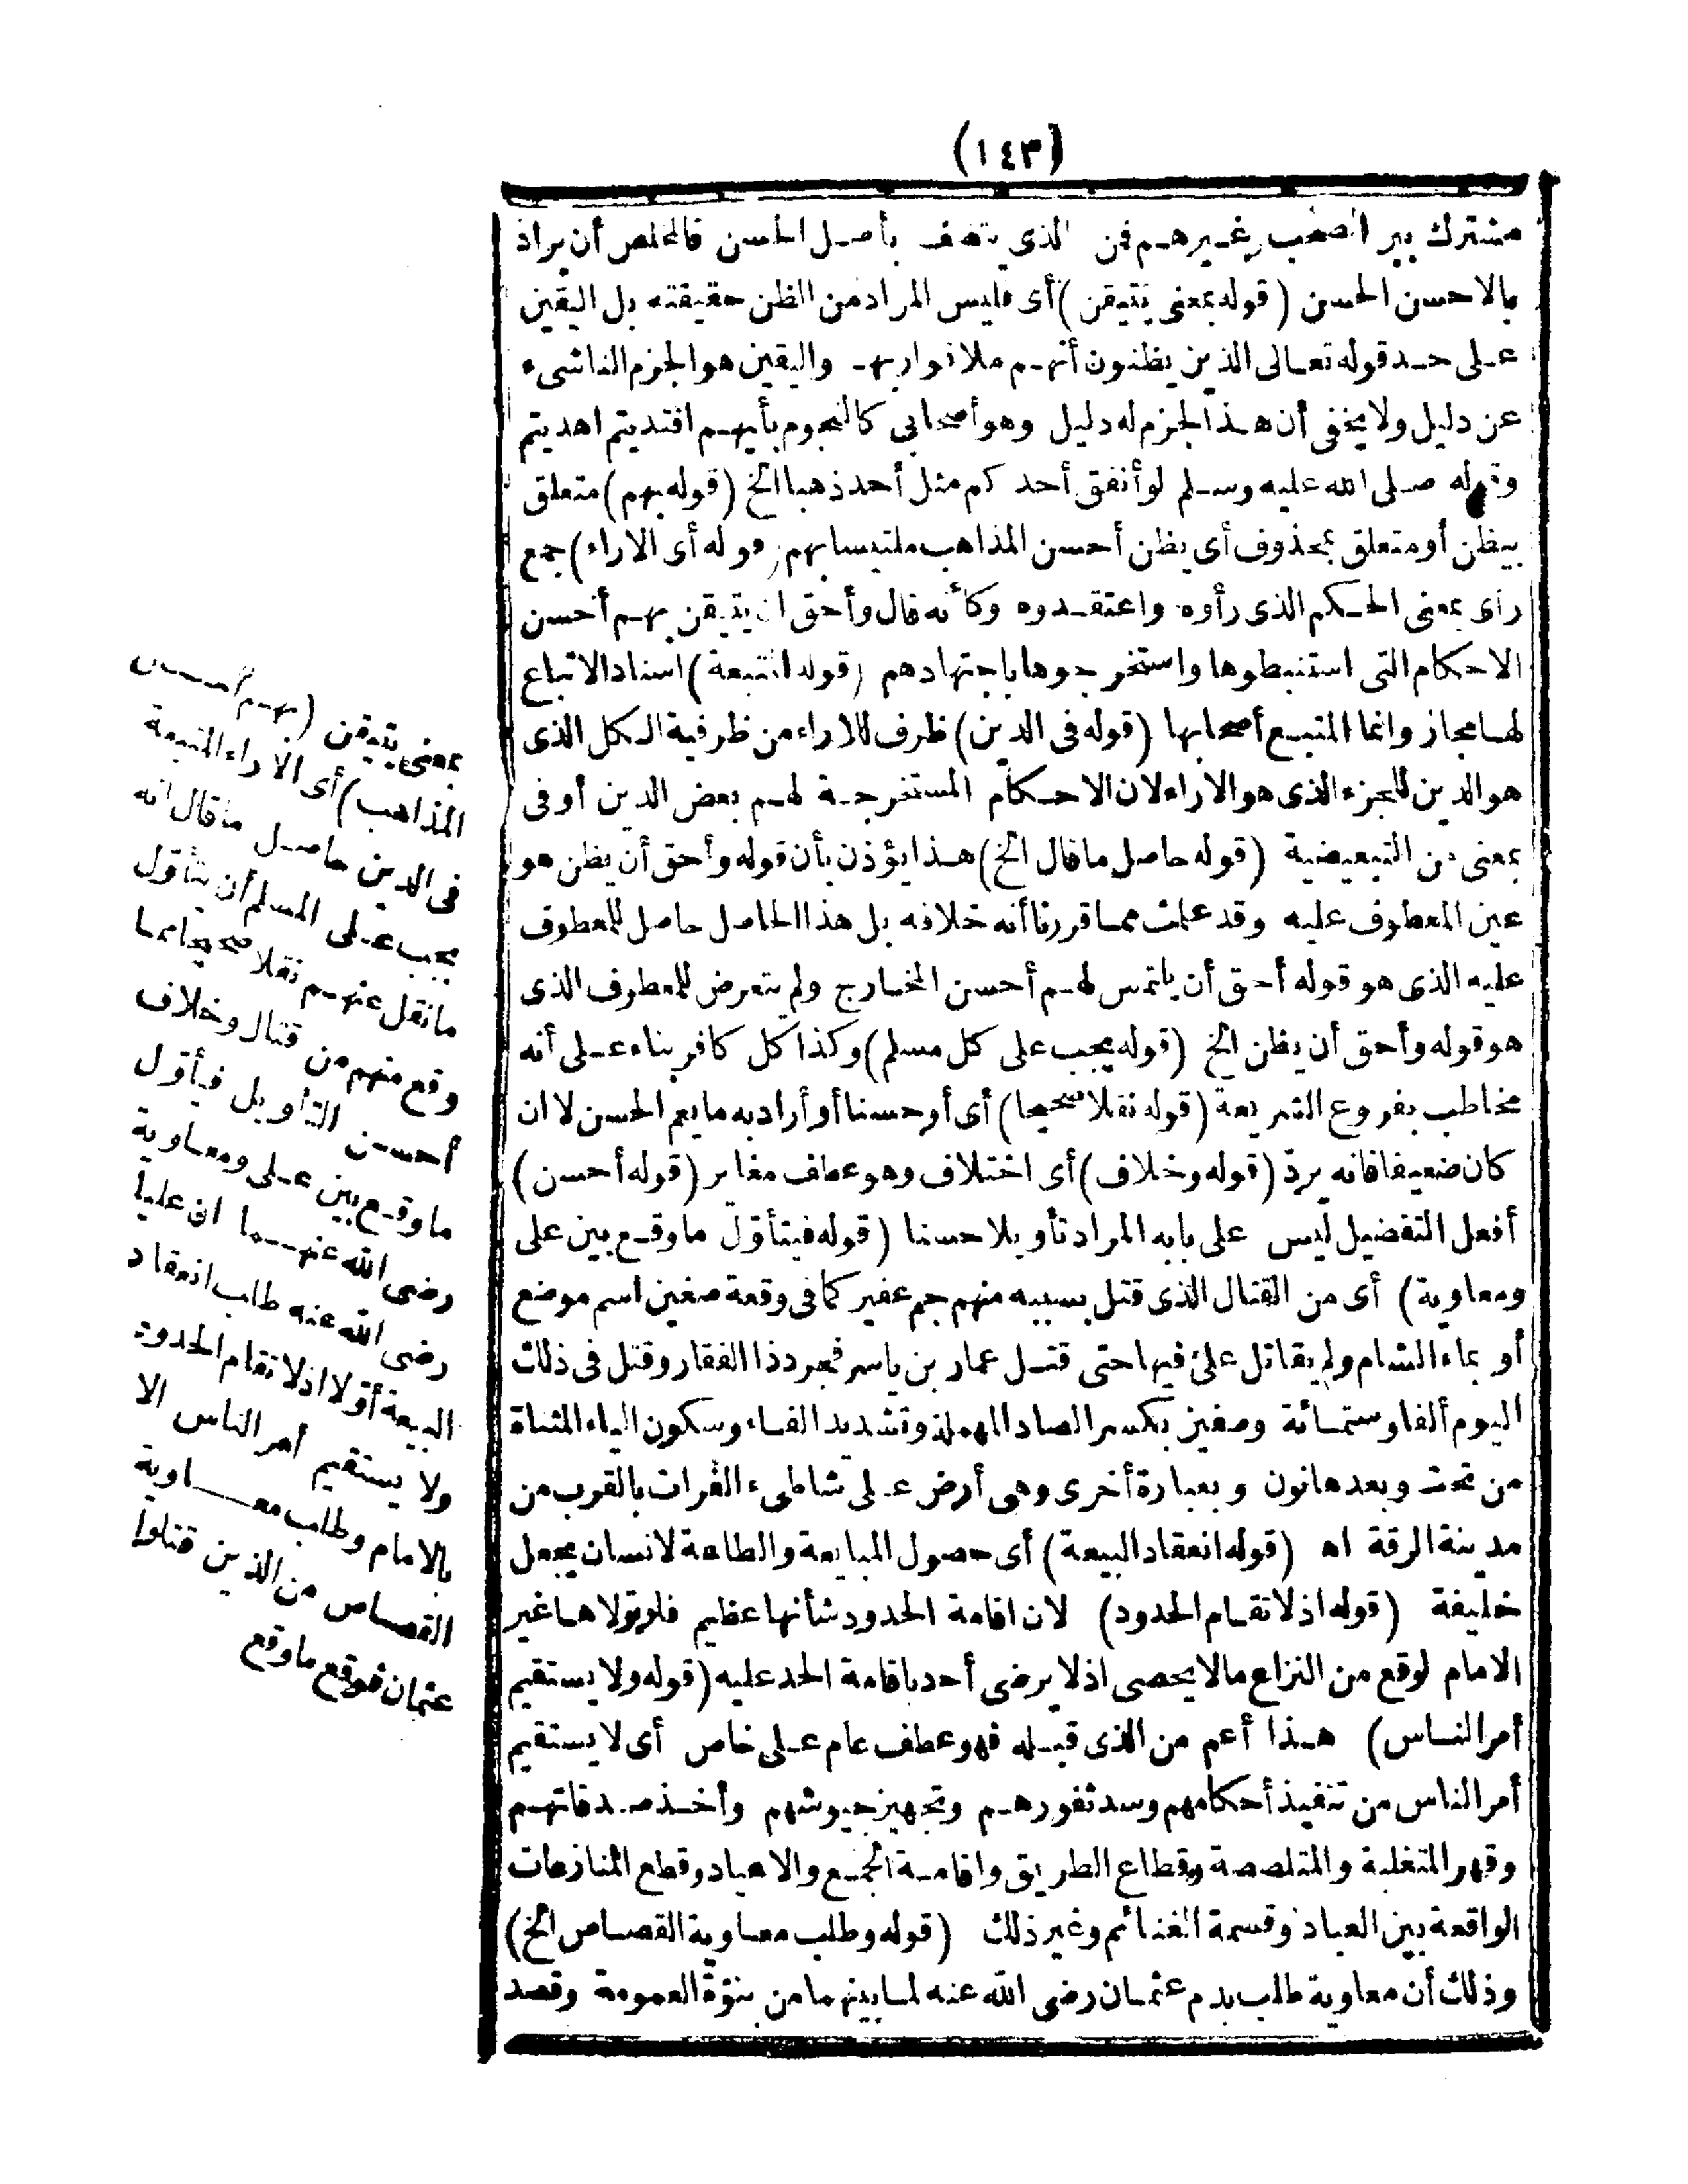 (١٤٣)
مشترك بين الصحب وغيرهم فمن الذى يتصف بأصل الحسن فالمخلص أن يراد
بالاحسن الحسن (قوله بمعنى يتيقن) أى فليس المراد من الظن حقيقته بل اليقين
على حد قوله تعالى الذين يظنون أنهم ملاقوا ربهم واليقين هو الجزم الناشىء
عن دليل ولا يخفى أن هذا الجزم له دليل وهو أصحابى كالنجوم بأيهم اقتديتم اهديتم
وقوله صلى الله عليه وسلم لو أنفق أحدكم مثل أحد ذهبا الخ (قوله بهم) متعلق
بيظن أو متعلق بمحذوف أى يظن أحسن المذاهب ملتبسا بهم (قوله أى الاراء) جمع
رأى بمعنى الحكم الذى رأوه واعتقدوه وكأنه قال وأحق ان يتيقن بهم أحسن
الاحكام التى استنبطوها واستخرجوها باجتهادهم (قوله المتبعة) اسناد الاتباع
لها مجاز وانما المتبع أصحابها (قوله فى الدين) ظرف للاراء من ظرفية الكل الذى
هو الدين للجزء الذى هو الاراء لان الاحكام المستخرجة لهم بعض الدين أو فى
بمعنى من التبعيضية (قوله حاصل ما قال الخ) هذا يؤذن بأن قوله وأحق أن يظن هو
عين المعطوف عليه وقد علمت مما قررنا أنه خلافه بل هذا الحاصل حاصل للمعطوف
عليه الذى هو قوله أحق أن يلتمس لهم أحسن المخارج ولم يتعرض للمعطوف الذى
هو قوله وأحق أن يظن الخ (قوله يجب على كل مسلم) وكذا كل كافر بناء على أنه
مخاطب بفروع الشريعة (قوله نقلا صحيحا) أى أو حسنا أو أراد به ما يعم الحسن لا ان
كان ضعيفا فانه يردّ (قوله وخلاف) أى اختلاف وهو عطف مغاير (قوله أحسن)
أفعل التفضيل ليس على بابه المراد تأويلا حسنا (قوله فيتأوّل ما وقع بين على
ومعاوية) أى من القتال الذى قتل بسببه منهم جم غفير كما فى وقعة صفين اسم موضع
أو بماء الشام ولم يقاتل علىّ فيها حتى قتل عمار بن ياسر فجرد ذا الفقار وقتل فى ذلك
اليوم ألفا وستمائة وصفين بكسر الصاد المهملة وتشديد الفاء وسكون الياء المثناة
من تحت وبعدها نون وبعبارة أخرى وهى أرض على شاطىء الفرات بالقرب من
مدينة الرقة اه (قوله انعقاد البيعة) أى حصول المبايعة والطاعة لانسان يجعل
خليفة (قوله اذ لا تقام الحدود) لان اقامة الحدود شأنها عظيم فلو تولاها غير
الامام لوقع من النزاع ما لا يحصى اذ لا يرضى أحد باقامة الحد عليه (قوله ولا يستقيم
أمر الناس) هذا أعم من الذى قبله فهو عطف عام على خاص أى لا يستقيم
أمر الناس من تنفيذ أحكامهم وسد ثغورهم وتجهيز جيوشهم وأخذ صدقاتهم
وقهر المتغلبة والمتلصصة وقطاع الطريق واقامة الجمع والاعياد وقطع المنازعات
الواقعة بين العباد وقسمة الغنائم وغير ذلك (قوله وطلب معاوية القصاص الخ)
وذلك أن معاوية طلب بدم عثمان رضى الله عنه لما بينهما من بنوّة العمومة وقصد
بمعنى يتيقن (بهم أحسن
المذاهب) أى الاراء المتبعة
فى الدين حاصل ما قال انه
يجب على المسلم أن يتأوّل
ما نقل عنهم نقلا صحيحا مما
وقع منهم من قتال وخلاف
أحسن التأويل فيأوّل
ما وقع بين على ومعاوية
رضى الله عنهما ان عليا
رضى الله عنه طلب انعقاد
البيعة أوّلا اذ لا تقام الحدود
ولا يستقيم أمر الناس الا
بالامام وطلب معاوية
القصاص من الذين قتلوا
عثمان فوقع ما وقع